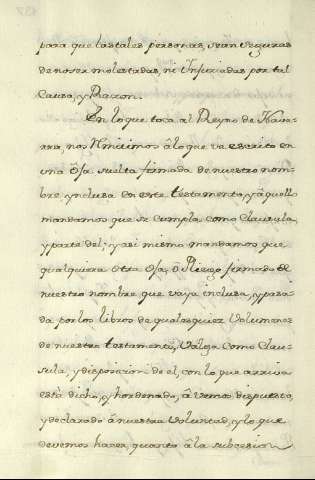 para que las tales personas, sean seguras
de no ser molestadas, ni Injuriadas por tal
Causa, y Raçon.
En lo que toca al Reyno de Nava-
rra, nos Rmitimos â lo que va escrito en
una ôja suelta firmada de nuestro nom-
bre y inclusa en este testamento, y aquello
mandamos que se cumpla, como Clausula
y parte del; y asi mismo mandamos que
qualquiera otra ôja, ô Pliego firmado de
nuestro nombre que vaya inclusa, y pasa-
da por los libros de qualesquier Volumenes
de nuestro testamento, Valga como Clau-
sula, y disposicion de el, con lo que arriva
està dicho, y hordenado, âvemos dispuesto,
y declarado â nuestra Voluntad, y lo que
devemos hacer, quanto â la subcesion